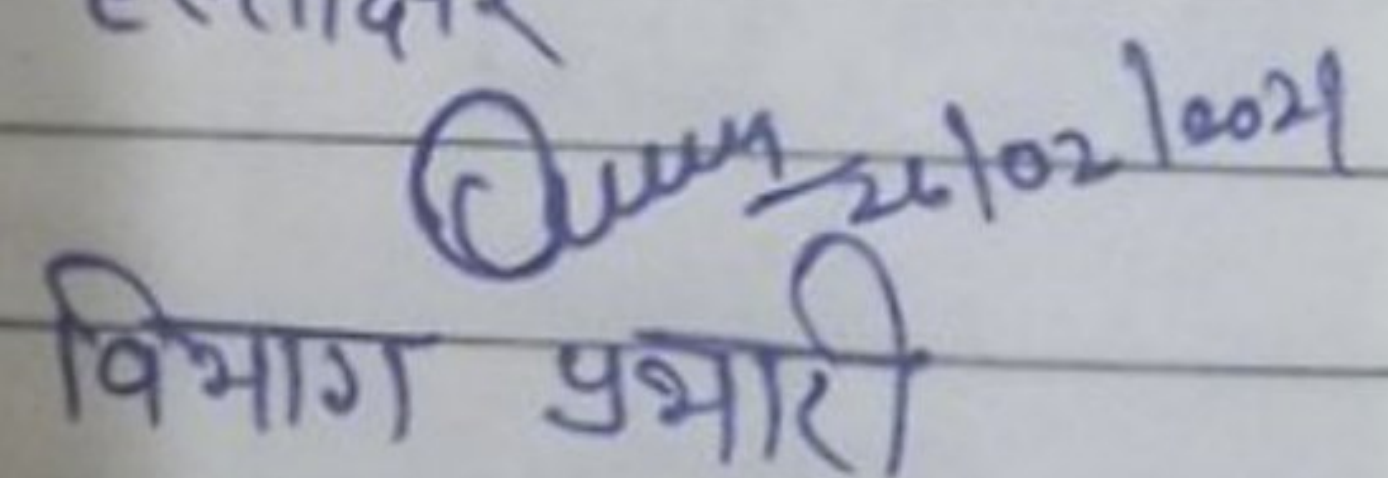 हस्ताक्षर
26/02/2021
विभाग प्रभारी